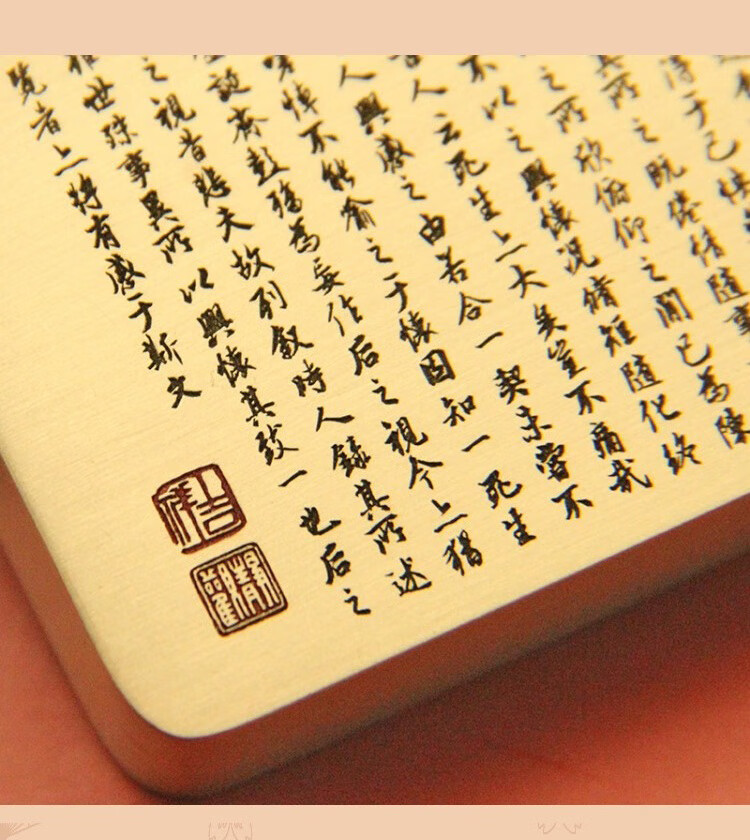 得于己快
其所之既倦情隨事
之所欣俯仰之間已為陳
不以之興懷況脩短隨化終
人云死生亦大矣豈不痛哉
人興感之由若合一契未嘗不
嗟悼不能喻之于懷固知一死生
誕齊彭殤為妄作后之視今亦猶
之視昔悲夫故列敘時人錄其所述
雖世殊事異所以興懷其致一也后之
覽者亦將有感于斯文
吉祥